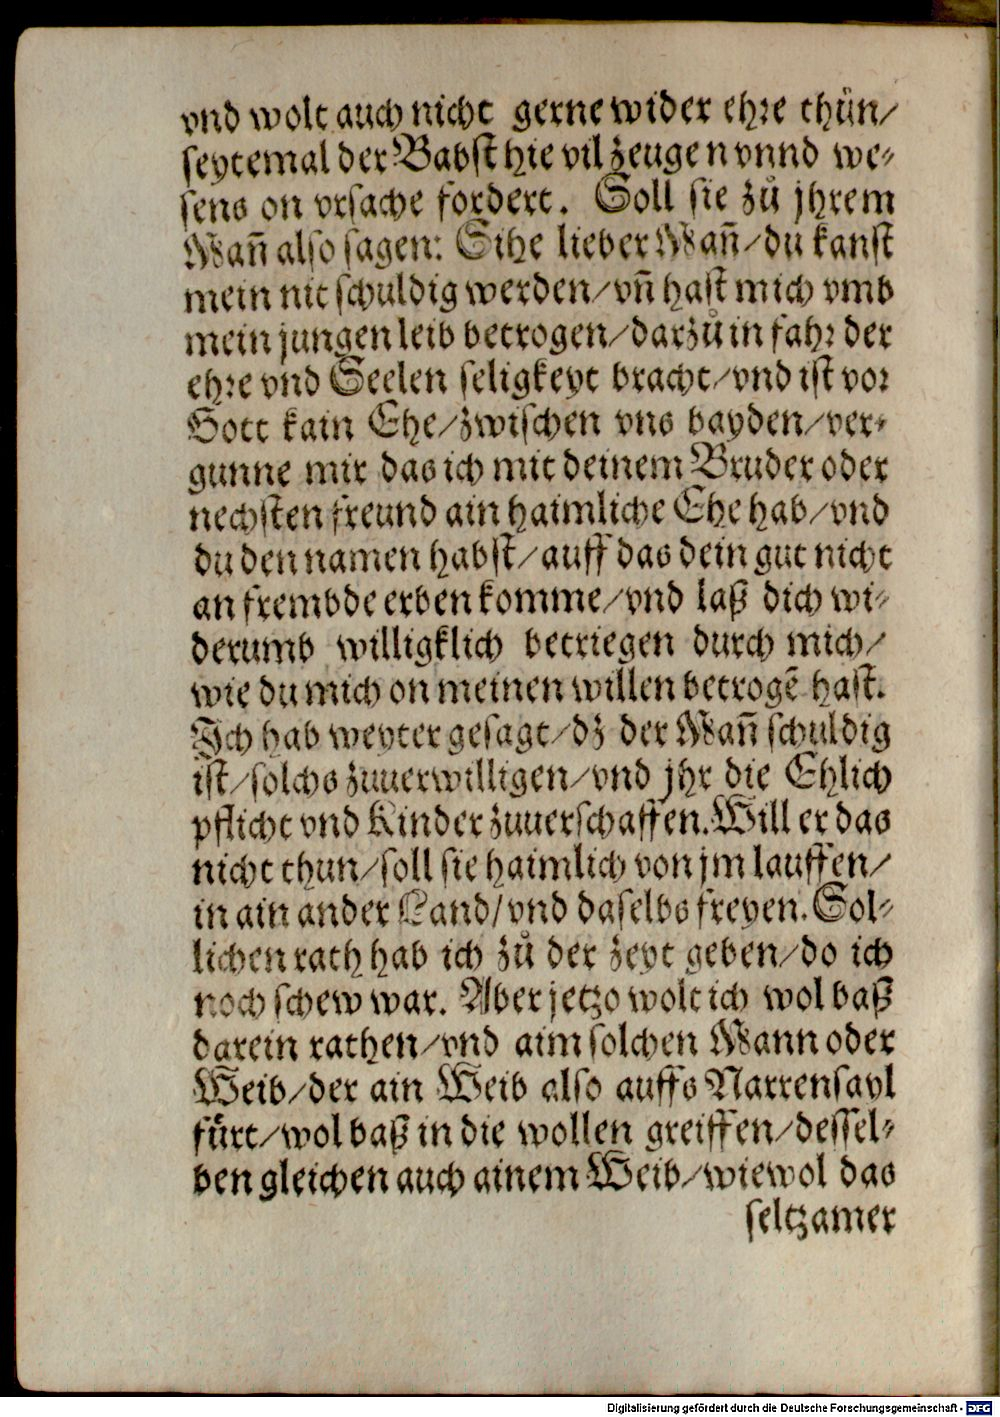 vnd wolt auch nicht gerne wider ehre thün/
seytemal der Babst hie vil zeugen vnnd we⸗
sens on vrsache fordert. Soll sie zů jhrem
Mañ also sagen: Sihe lieber Mañ/du kanst
mein nit schuldig werden/vñ hast mich vmb
mein jungen leib betrogen/darzů in fahr der
ehre vnd Seelen seligkeyt bracht/vnd ist vor
Gott kain Ehe/zwischen vns bayden/ver⸗
gunne mir das ich mit deinem Bruder oder
nechsten freund ain haimliche Ehe hab/vnd
du den namen habst/auff das dein gut nicht
an frembde erben komme/vnd laß dich wi⸗
derumb willigklich betriegen durch mich/
wie du mich on meinen willen betrogẽ hast.
Ich hab weyter gesagt/dz der Mañ schuldig
ist/solchs zuuerwilligen/vnd jhr die Ehlich
pflicht vnd Kinder zuuerschaffen. Will er das
nicht thun/soll sie haimlich von jm lauffen/
in ain ander Land/vnd daselbs freyen. Sol⸗
lichen rath hab ich zů der zeyt geben/do ich
noch schew war. Aber jetzo wolt ich wol baß
darein rathen/vnd aim solchen Mann oder
Weib/der ain Weib also auffs Narrensayl
fürt/wol baß in die wollen greiffen/dessel⸗
ben gleichen auch ainem Weib/wiewol das
seltzamer
Digitalisierung gefördert durch die Deutsche Forschungsgemeinschaft - DFG